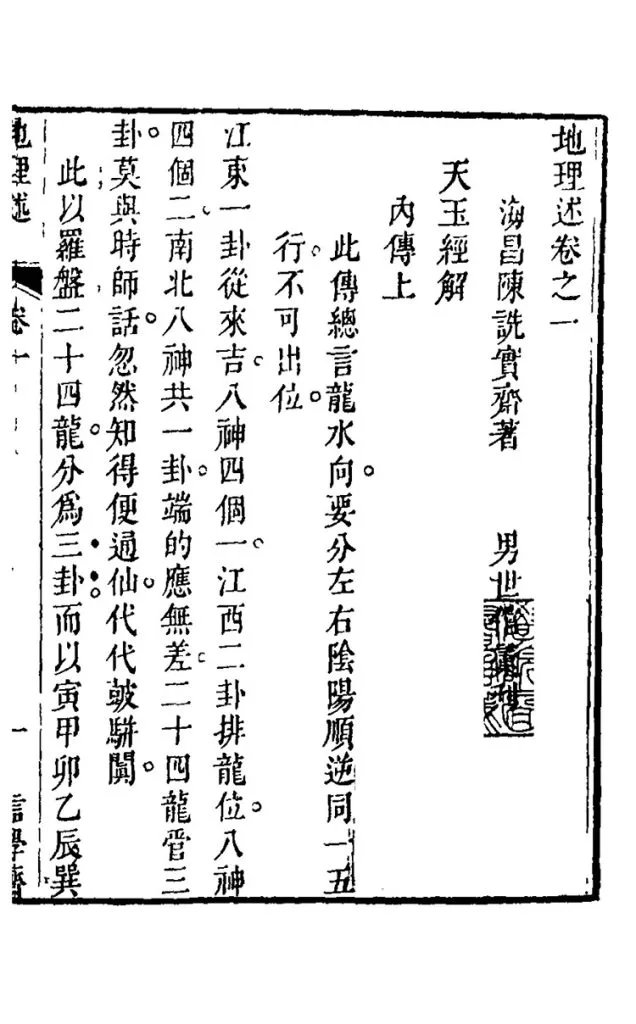 地理述卷之一
海昌陳詵實齋著 男世
天玉經解
內傳上
此傳總言龍水向要分左右陰陽順逆同一五
行不可出位
江東一卦從來吉八神四個一江西二卦排龍位八神
四個二南北八神共一卦端的應無差二十四龍管三
卦莫與時師話忽然知得便通仙代代皷駢闐
此以羅盤二十四龍分為三卦而以寅甲卯乙辰巽
地理述 卷一 一 信學齋